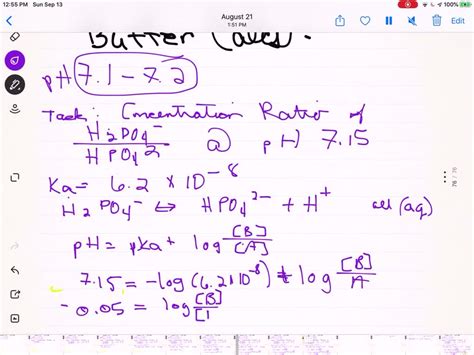 12:55 PM Sun Sep 13
100%
August 21
1:51 PM
Edit
Buffer
pH 7.1-7.2
Task: Concentration Ratio of
H2PO4- / HPO4 2 @ pH 7.15
Ka= 6.2 × 10^-8
H2PO4- ⇔ HPO4 2- + H+ all (aq)
pH = pKa + log [B]/[A]
7.15 = -log (6.2×10^-8) + log [B]/A
-0.05 = log [B]/[
76 / 76